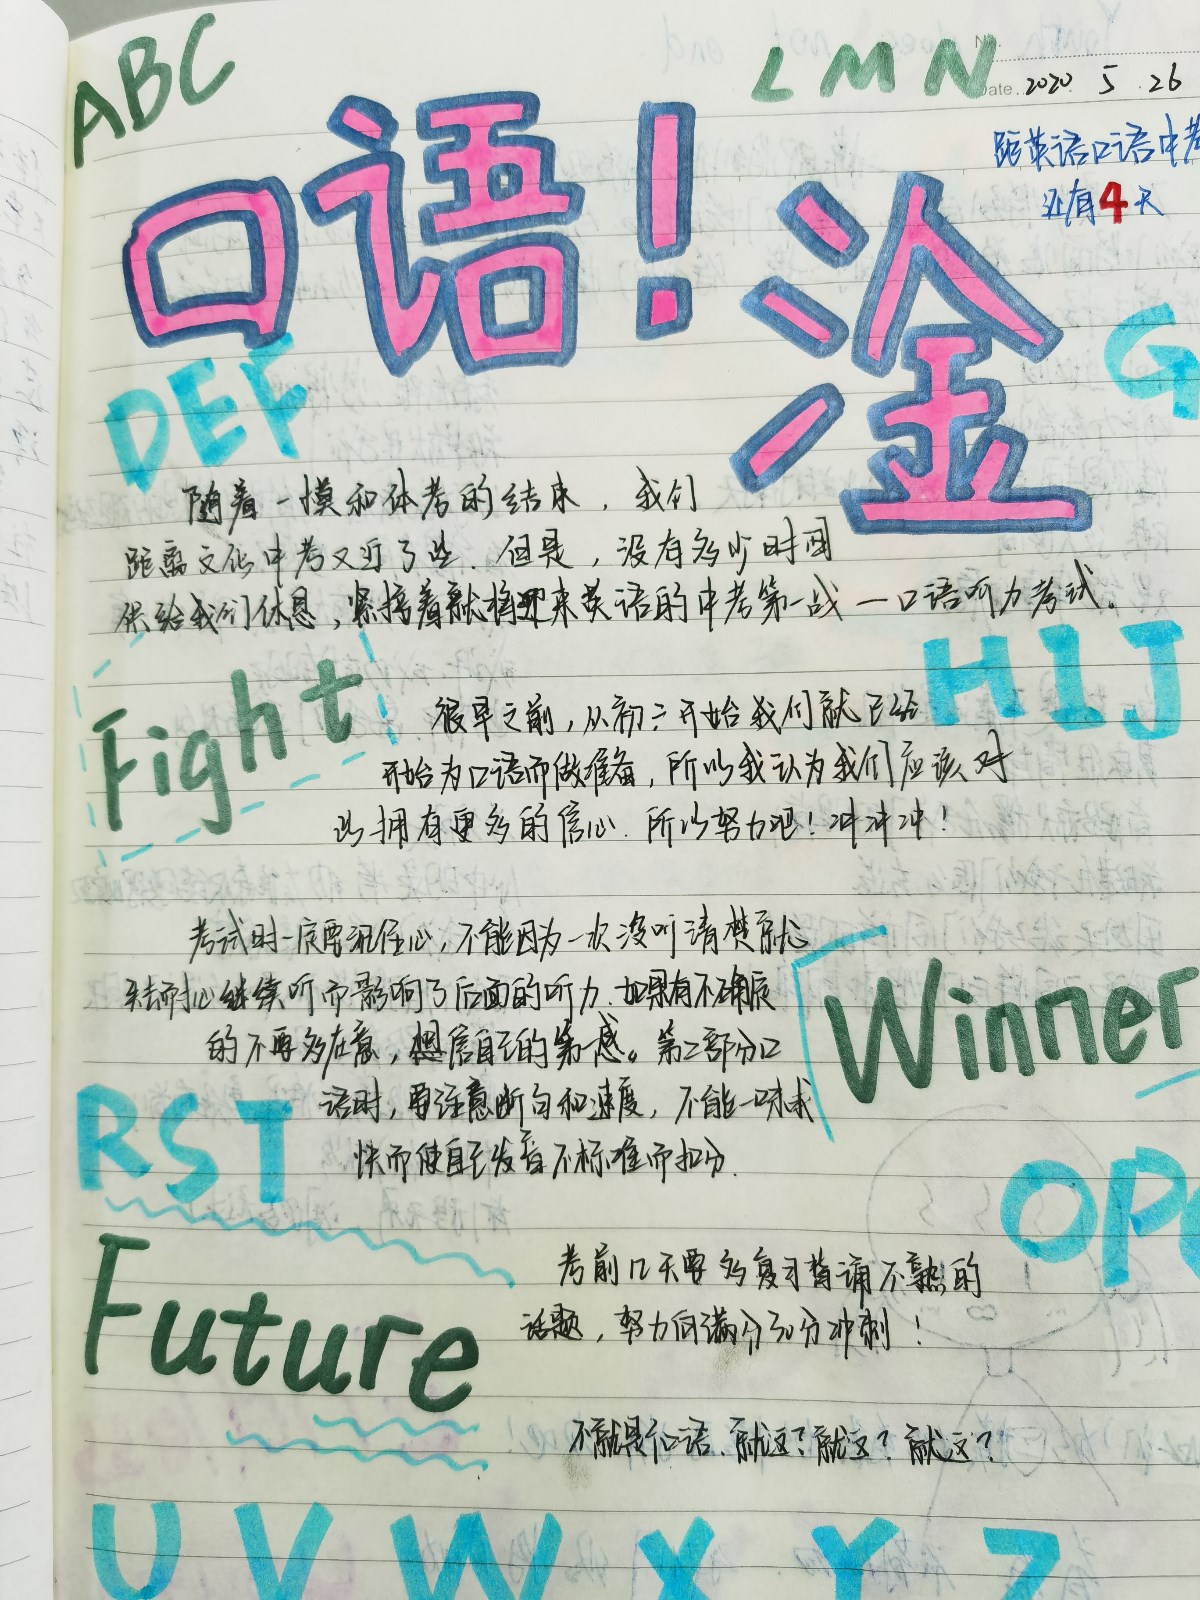 ABC
LMN
No.
Date. 2020. 5. 26
距英语口语中考
还有4天
口语! 淦
DEF
G
随着一模和体考的结束，我们
距离文化中考又近了些. 但是，没有多少时间
供给我们休息，紧接着就将迎来英语的中考第一战—口语听力考试。
HIJ
Fight
很早之前，从初二开始我们就已经
开始为口语而做准备，所以我认为我们应该对
此拥有更多的信心. 所以努力吧！冲冲冲！
考试时一定要沉住心，不能因为一次没听清楚就
失去耐心继续听而影响了后面的听力. 如果有不确定
的不要多在意，相信自己的第一感。第二部分口
语时，要注意断句和速度，不能一味求
快而使自己发音不标准而扣分.
Winner
RST
OPQ
Future
考前几天要多复习背诵不熟的
话题，努力向满分30分冲刺！
不就是个口语. 就这？就这？就这？
UVWXYZ